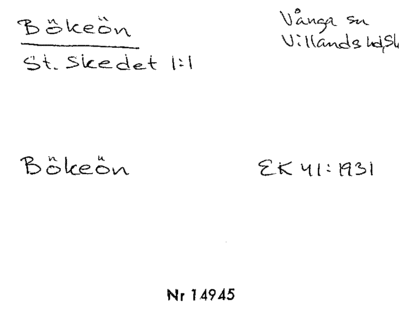 Bökeön
Vånga sn
St. Skedet 1:1
Villands hd, Sk
Bökeön
EK 41:1931
Nr 14945